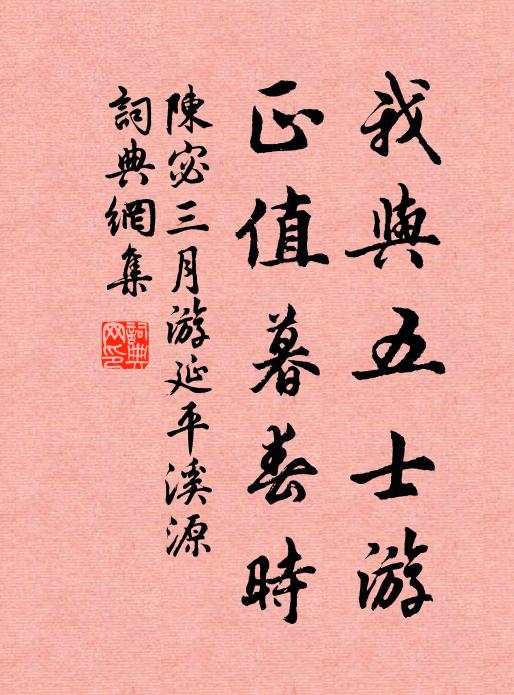 我與五士游
正值暮春時
陳宓三月游延平溪源
詞典網集
詞典網印